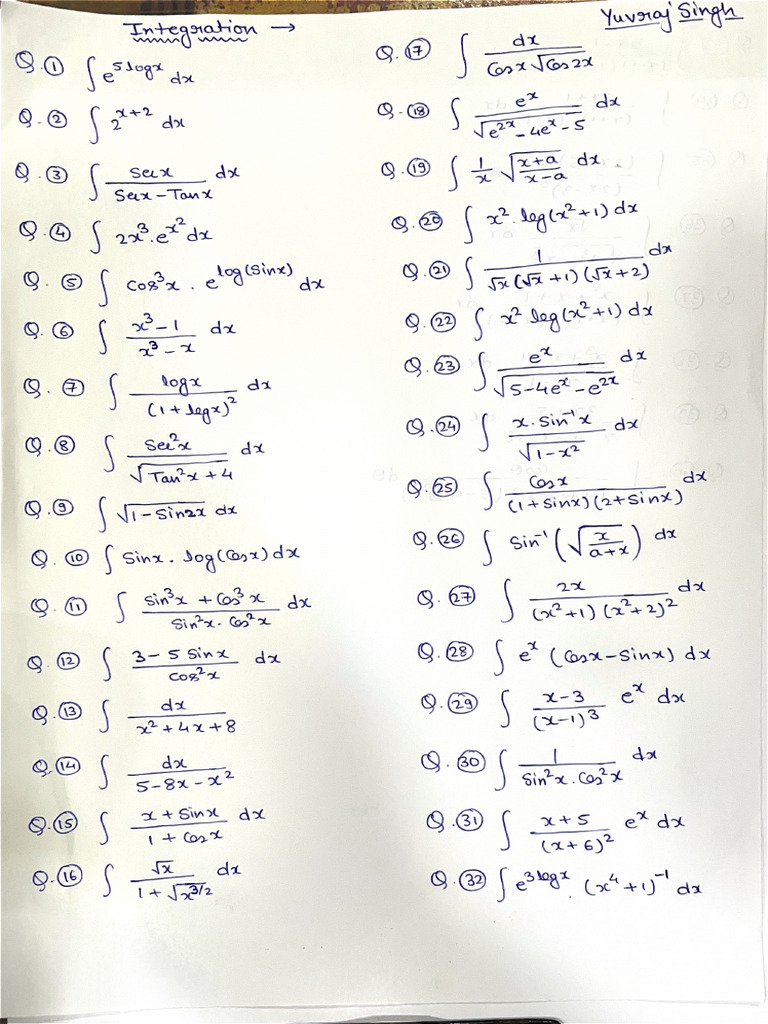 Integration →
Yuvraj Singh
Q.① ∫ e^{5 log x} dx
Q.② ∫ 2^{x+2} dx
Q.③ ∫ Sec x / (Sec x − Tan x) dx
Q.④ ∫ 2x³.e^{x²} dx
Q.⑤ ∫ Cos³x . e^{log(Sinx)} dx
Q.⑥ ∫ (x³−1) / (x³−x) dx
Q.⑦ ∫ log x / (1+log x)² dx
Q.⑧ ∫ Sec²x / √(Tan²x+4) dx
Q.⑨ ∫ √(1−Sin2x) dx
Q.⑩ ∫ Sinx . log(Cosx) dx
Q.⑪ ∫ (Sin³x + Cos³x) / (Sin²x . Cos²x) dx
Q.⑫ ∫ (3−5 Sinx) / cos²x dx
Q.⑬ ∫ dx / (x²+4x+8)
Q.⑭ ∫ dx / (5−8x−x²)
Q.⑮ ∫ (x+Sinx) / (1+Cosx) dx
Q.⑯ ∫ √x / (1+√(x^{3/2})) dx
Q.⑰ ∫ dx / (Cosx √(Cos2x))
Q.⑱ ∫ e^x / √(e^{2x}−4e^x−5) dx
Q.⑲ ∫ (1/x) √((x+a)/(x−a)) dx.
Q.⑳ ∫ x².log(x²+1) dx
Q.㉑ ∫ 1 / (√x(√x+1)(√x+2)) dx
Q.㉒ ∫ x² log(x²+1) dx
Q.㉓ ∫ e^x / √(5−4e^x−e^{2x}) dx
Q.㉔ ∫ x.Sin⁻¹x / √(1−x²) dx
Q.㉕ ∫ Cosx / ((1+Sinx)(2+Sinx)) dx
Q.㉖ ∫ Sin⁻¹(√(x/(a+x))) dx
Q.㉗ ∫ 2x / ((x²+1)(x²+2)²) dx
Q.㉘ ∫ e^x (Cosx−Sinx) dx
Q.㉙ ∫ (x−3) / (x−1)³ e^x dx
Q.㉚ ∫ 1 / (Sin²x.Cos²x) dx
Q.㉛ ∫ (x+5) / (x+6)² e^x dx
Q.㉜ ∫ e^{3 log x} . (x⁴+1)⁻¹ dx